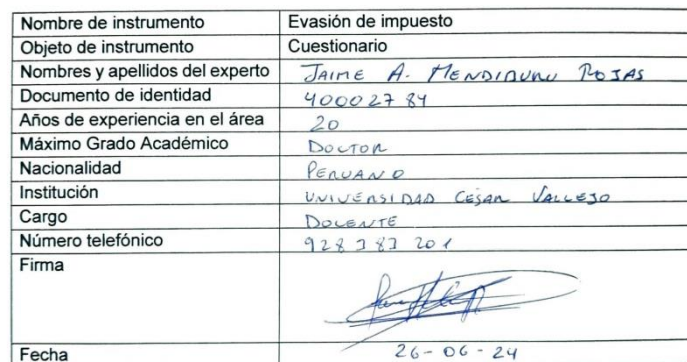 Nombre de instrumento Evasión de impuesto
Objeto de instrumento Cuestionario
Nombres y apellidos del experto JAIME A. MENDIBURU ROJAS
Documento de identidad 40002784
Años de experiencia en el área 20
Máximo Grado Académico DOCTOR
Nacionalidad PERUANO
Institución UNIVERSIDAD CESAR VALLEJO
Cargo DOCENTE
Número telefónico 928383201
Firma
Fecha 26-06-24